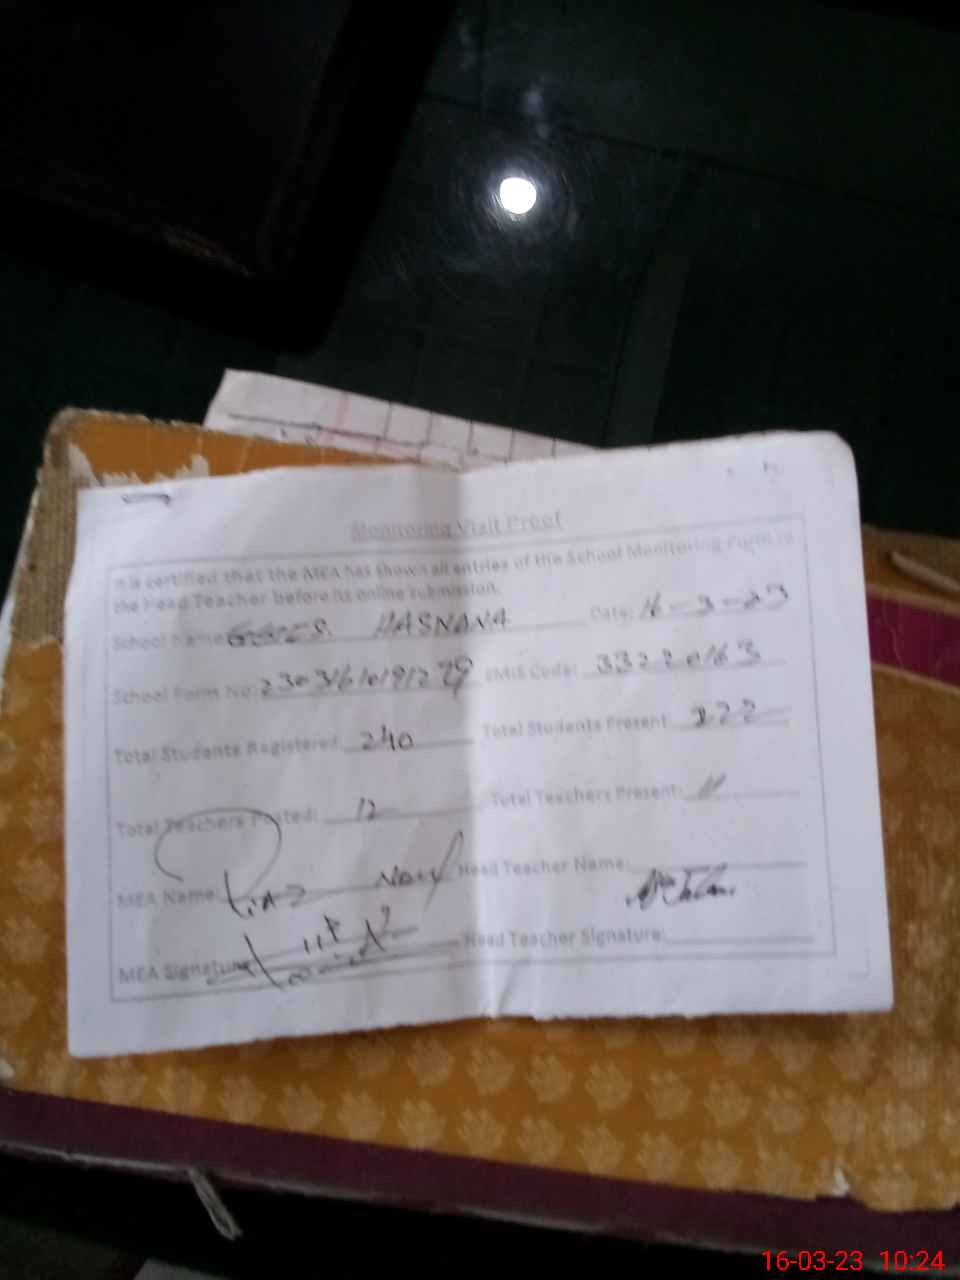 Monitoring Visit Proof
It is certified that the MEA has shown all entries of the School Monitoring Form to
the Head Teacher before its online submission.
School Name HASNANA Date: 16-3-23
School Form No: EMIS Code: 33220163
Total Students Registered 240 Total Students Present: 222
Total Teachers Posted: 12 Total Teachers Present: 11
MEA Name: Head Teacher Name:
MEA Signature Head Teacher Signature:
16-03-23 10:24